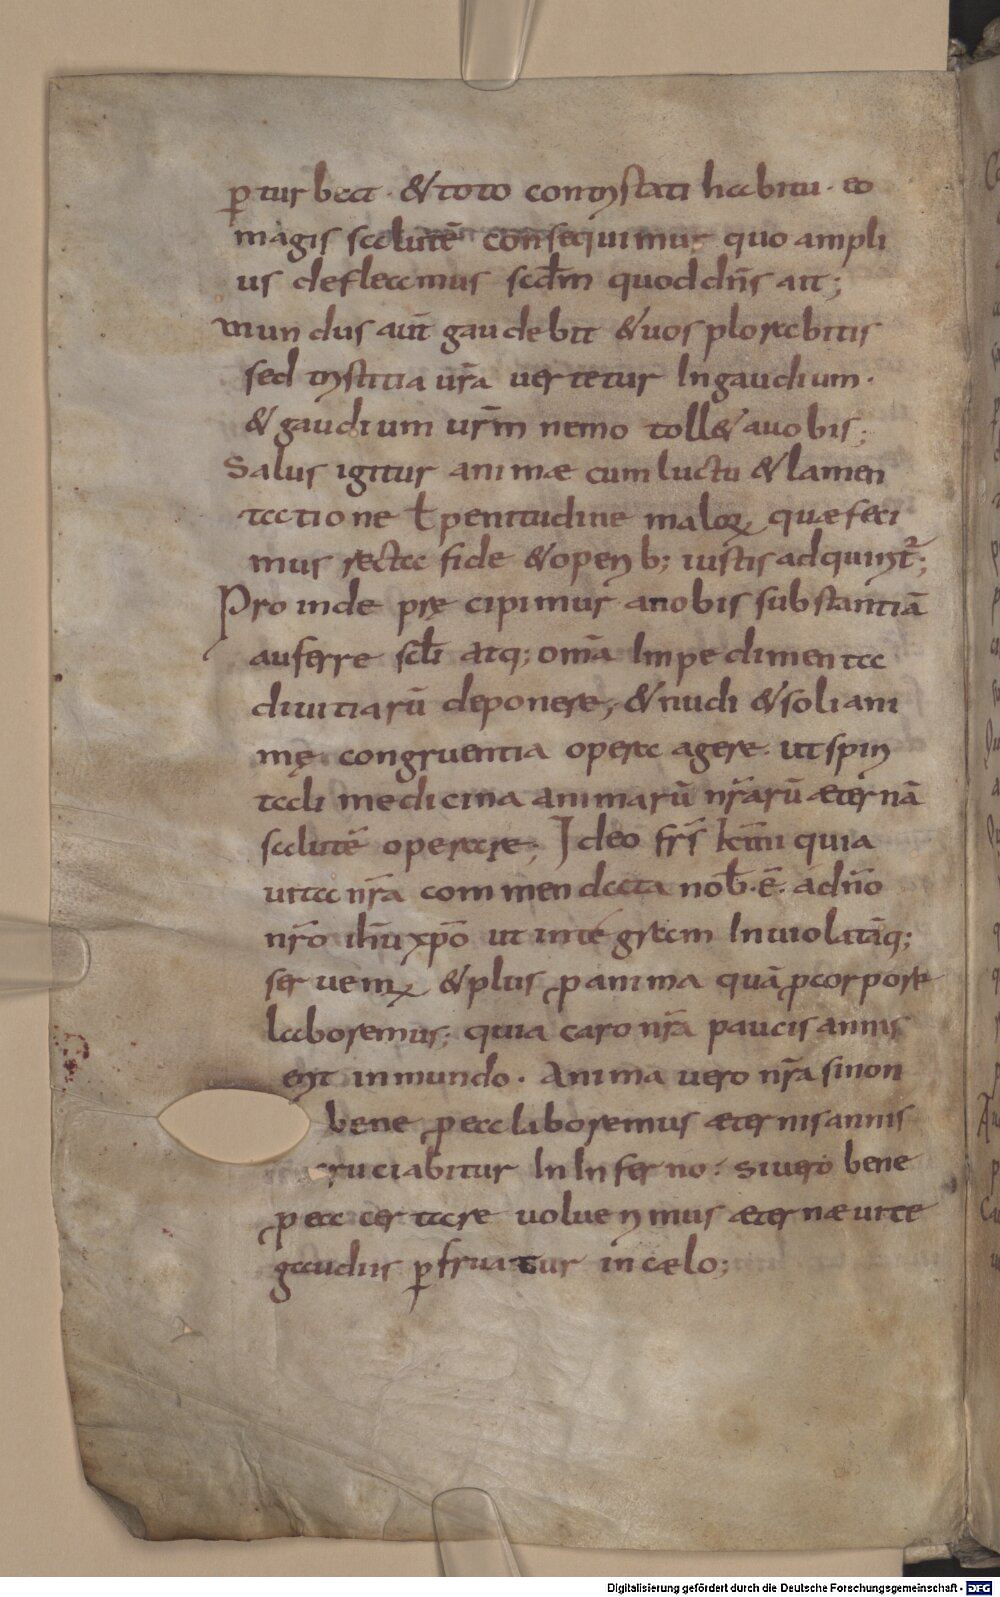 ꝑturbat · & toto contristati habitu · eo
magis salutē consequimur quo ampli
us defleamus scđm quod dn̄s ait;
mundus aūt gaudebit & uos plorabitis
sed tristitia ur̄a uertetur In gaudium ·
& gaudium ur̄m nemo toll& a uobis;
Salus igitur animæ cum luctu & lamen
tatione ł penitudine maloꝝ quæ feci
mus recta fide & operib; iustis adquirit᷑;
Proinde pręcipimur a nobis substantiā
auferre scłi atq; om̄a Impedimenta
diuitiarū deponere; & nudi & soli ani
mę congruentia opera agere · ut spiri
tali medicina animarū nr̄arū æternā
salutē operare; Ideo fr̄s kr̄mi quia
uita nr̄a commendata nob̄ · ē · a dn̄o
nr̄o ih̄u xp̄o ut integram Inuiolatāq;
seruemꝰ & plus ꝓ anima quā ꝓ corpore
laboremus; quia caro nr̄a paucis annis
erit in mundo · Anima uero nr̄a si non
bene ꝓ ea laboremus æternis annis
cruciabitur In Inferno : si uero bene
ꝓ ea certare uoluerimus æternæ uite
gaudiis ꝑfruatur in cælo;
Digitalisierung gefördert durch die Deutsche Forschungsgemeinschaft - DFG